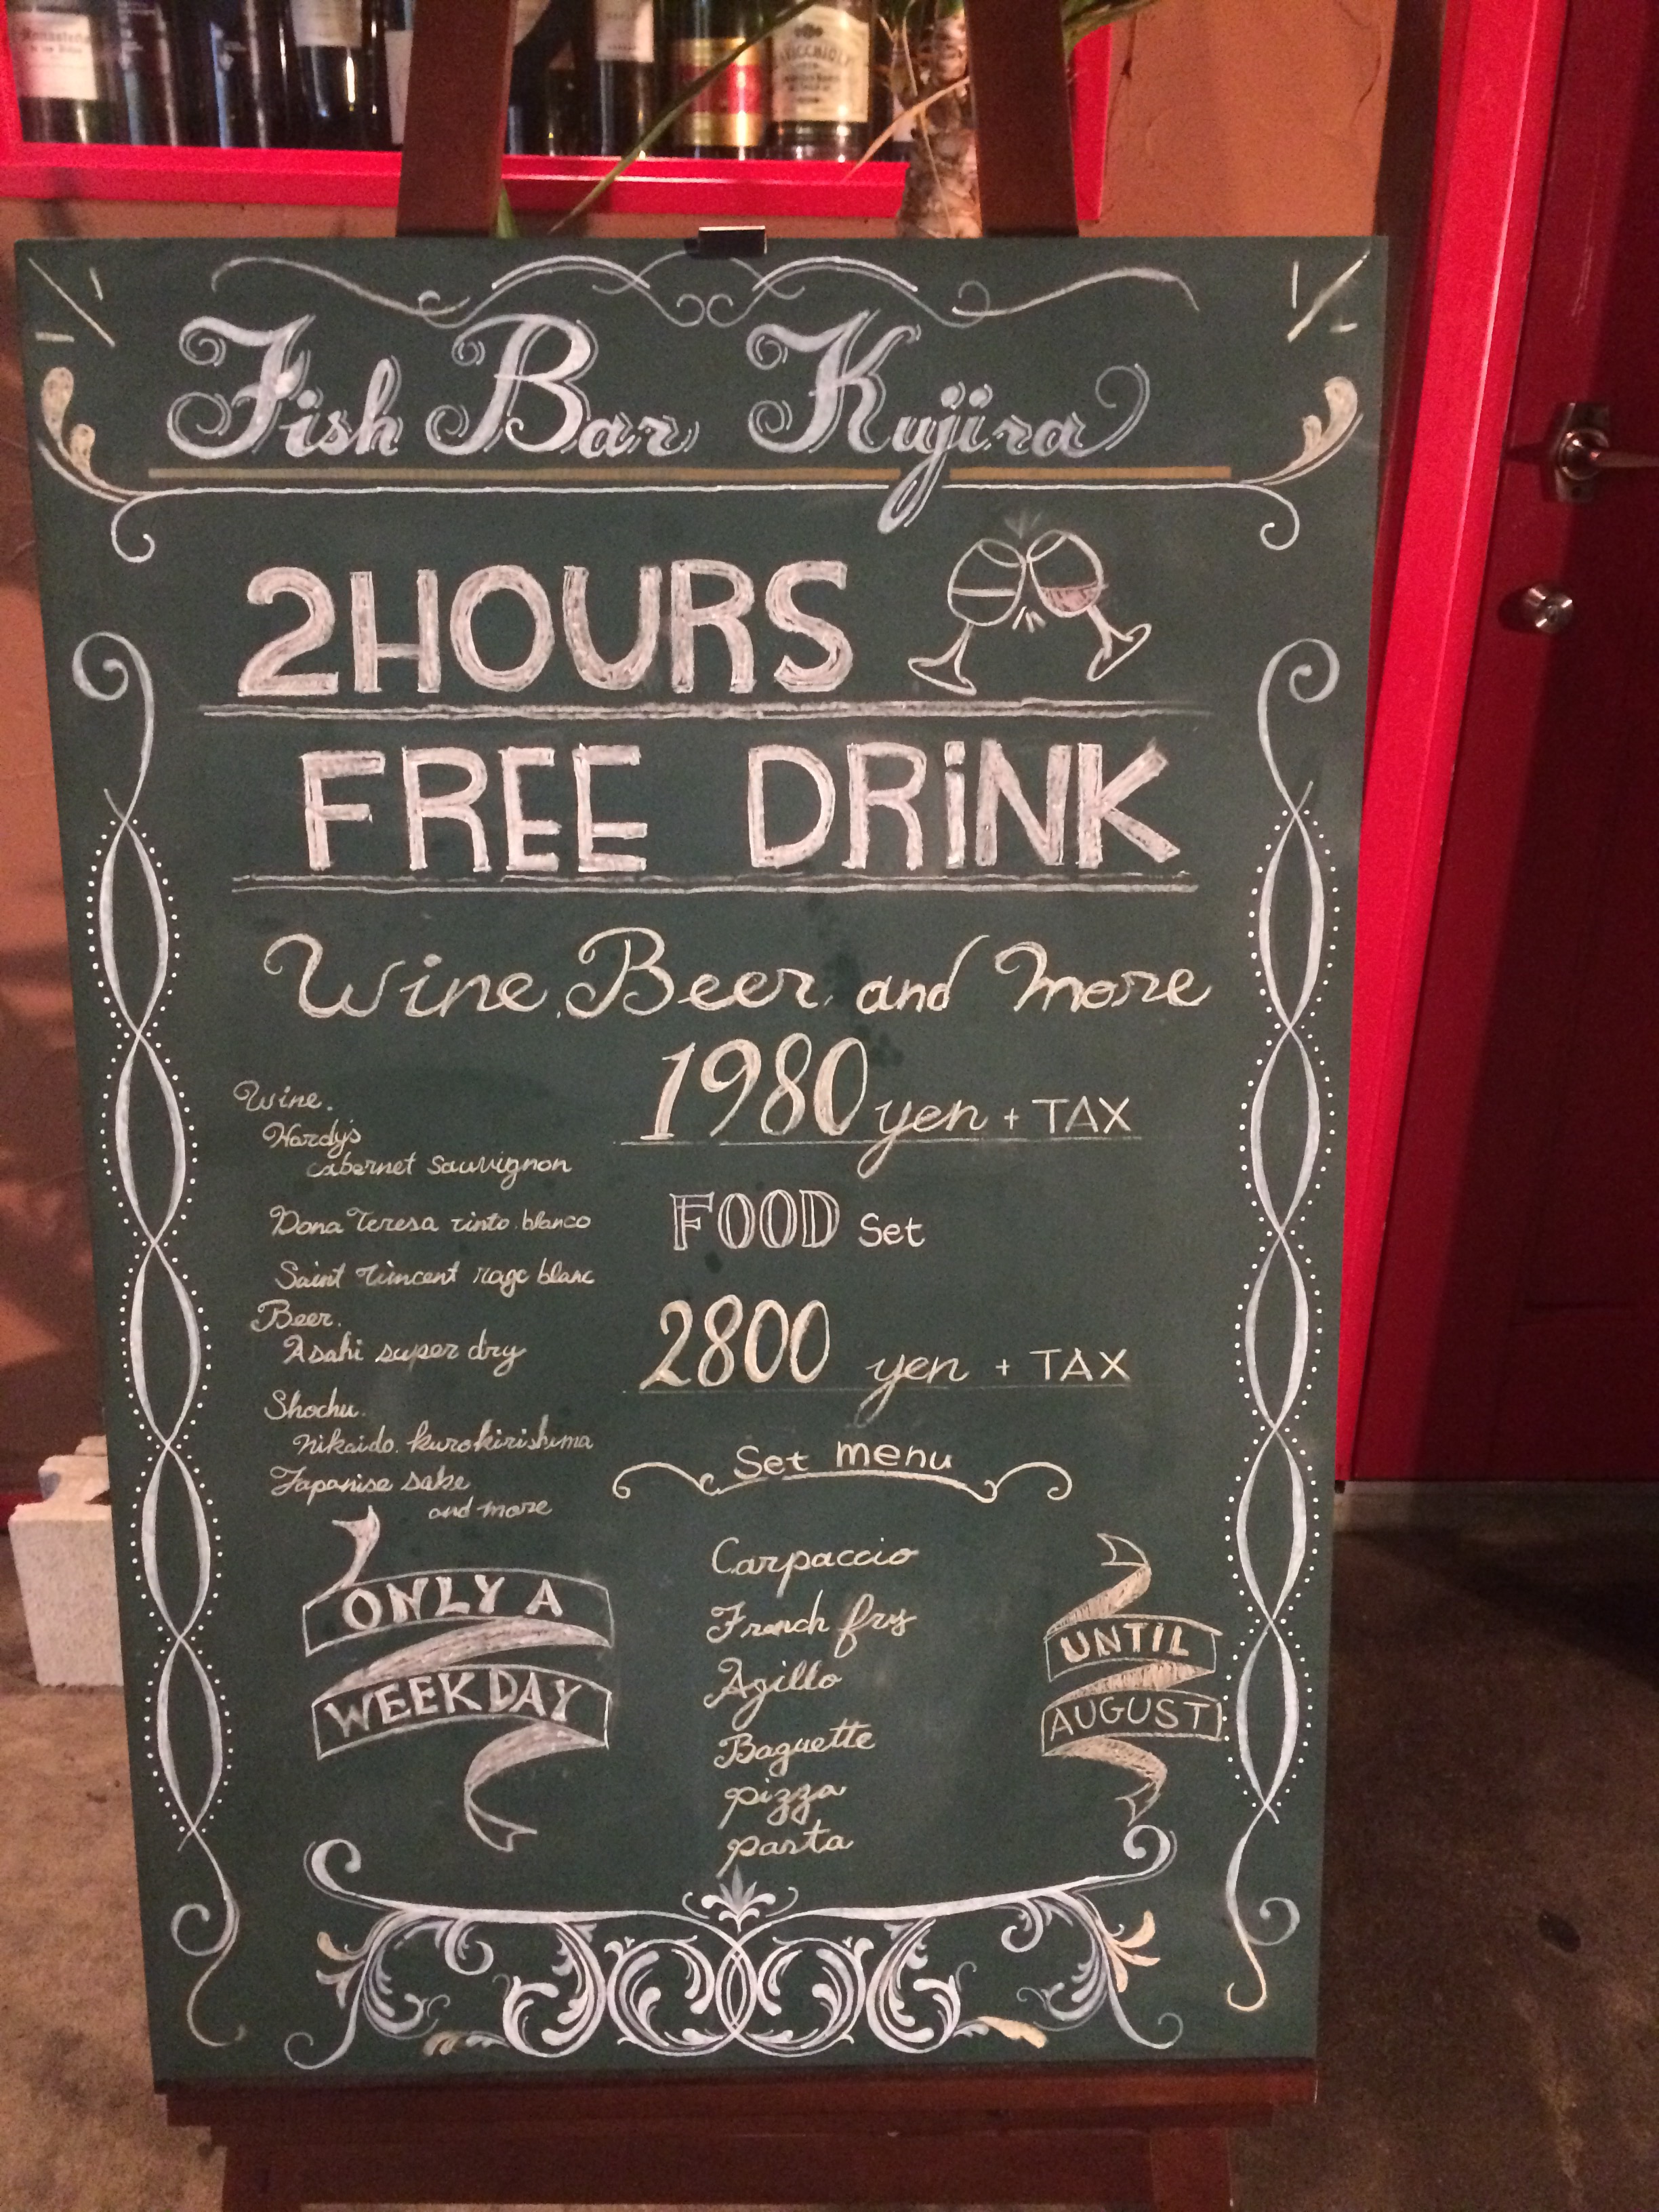 Fish Bar Kujira
2HOURS
FREE DRiNK
Wine, Beer, and More
1980 yen + TAX
Wine.
Hardy's
cabernet sauvignon
Dona Teresa tinto. blanco
Saint Vincent rage blanc
Beer.
Asahi super dry
Shochu.
Nikaido. kurokirishima
Japanise sake
and more
FOOD Set
2800 yen + TAX
Set menu
Carpaccio
French fry
Agillo
Baguette
pizza
pasta
ONLY A
WEEKDAY
UNTIL
AUGUST